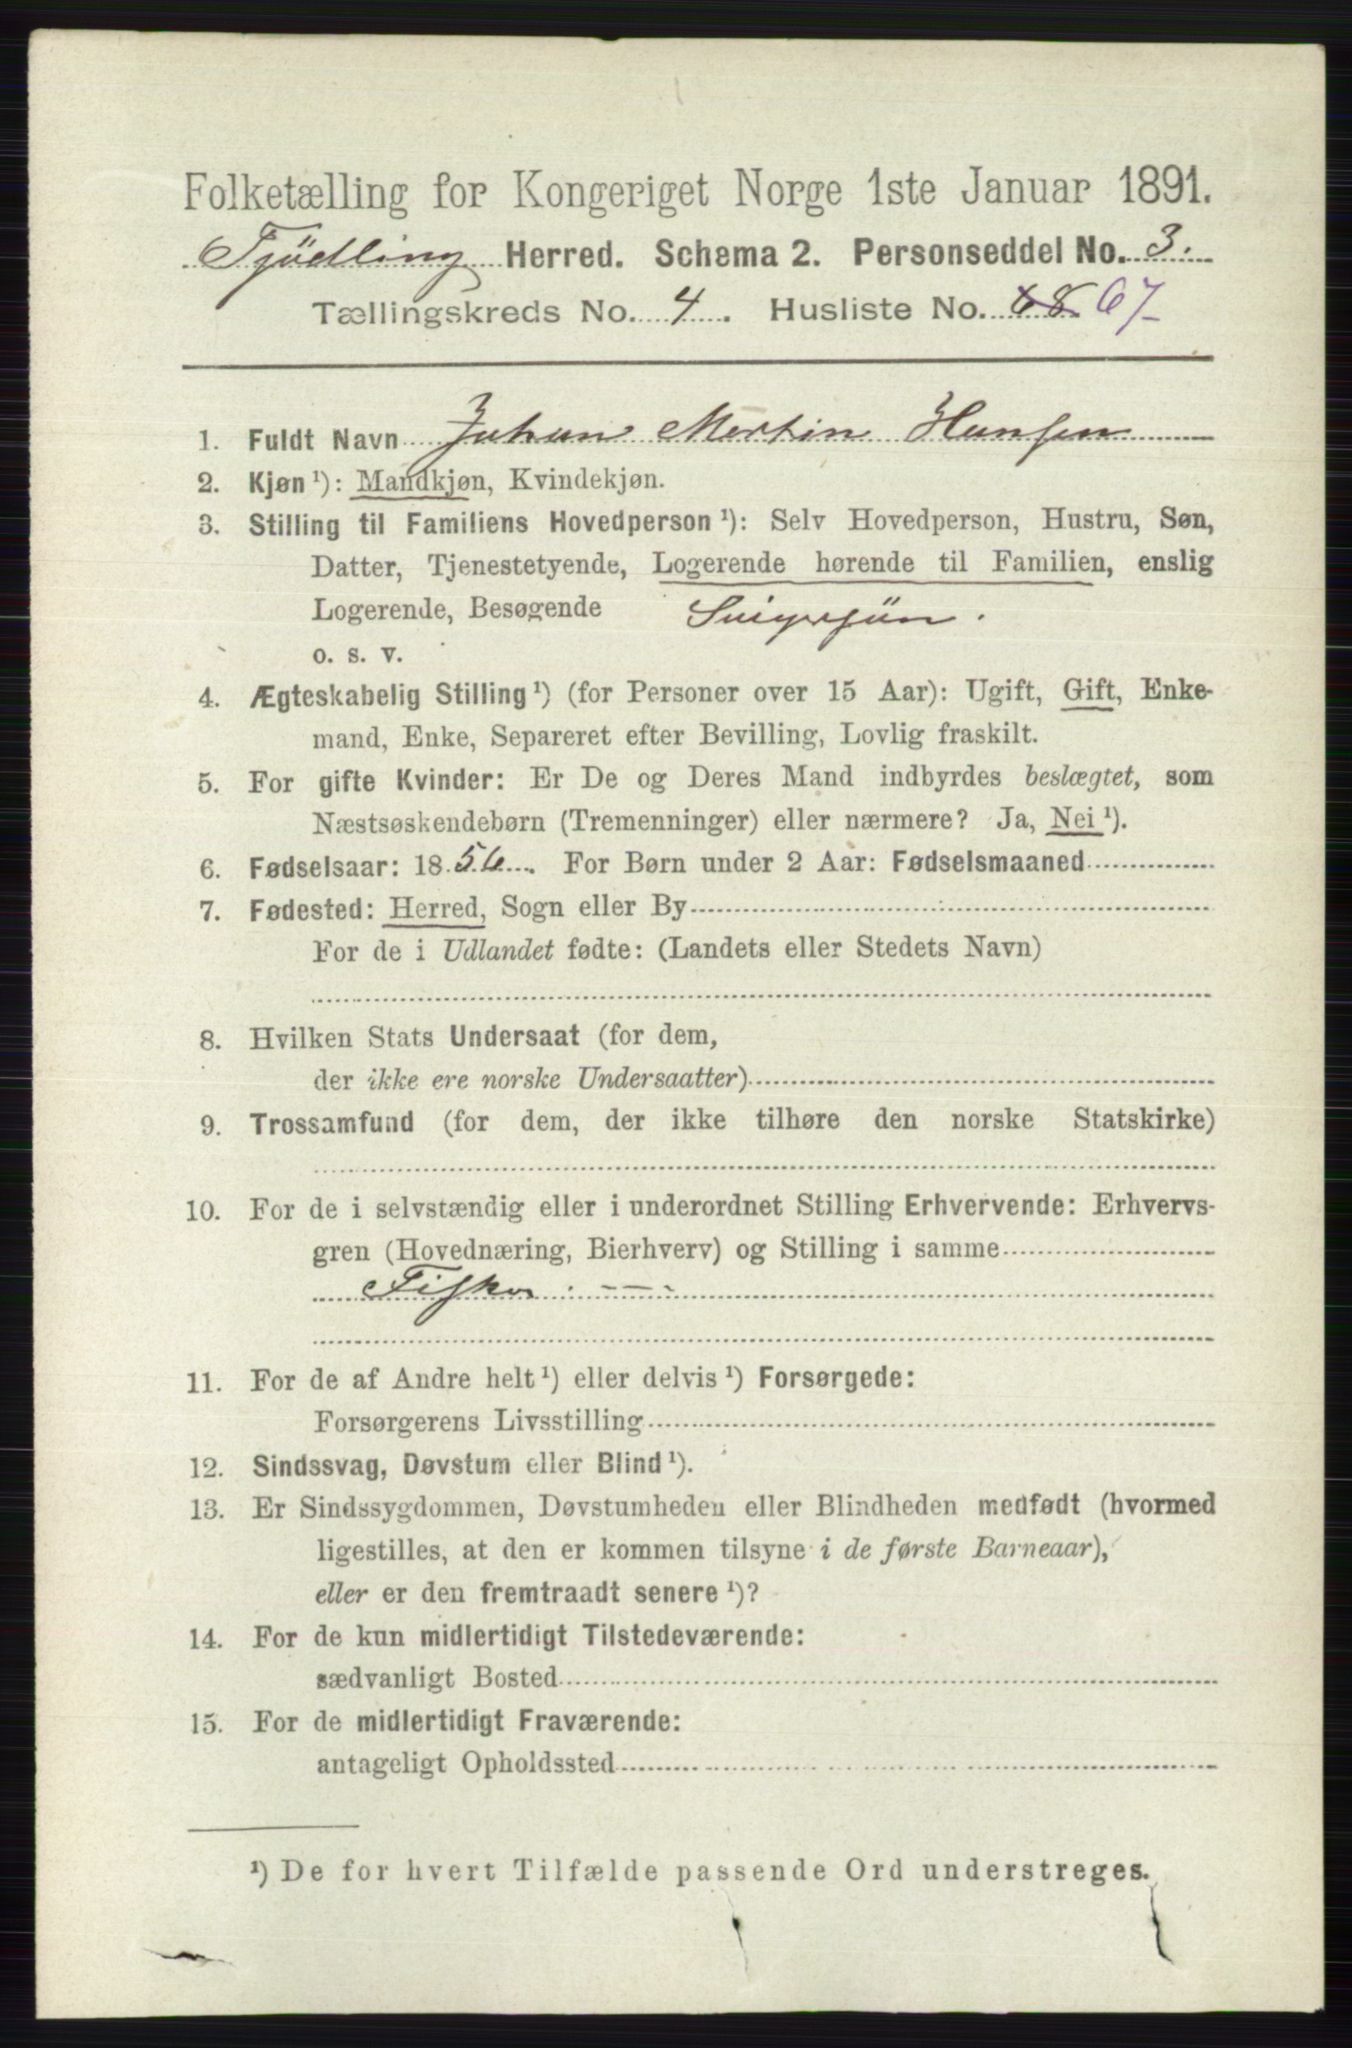 Folketælling for Kongeriget Norge 1ste Januar 1891.
Tjödling Herred. Schema 2. Personseddel No. 3.
Tællingskreds No. 4. Husliste No. 68 67
1. Fuldt Navn Johan Martin Hansen
2. Kjøn ¹): Mandkjøn, Kvindekjøn.
3. Stilling til Familiens Hovedperson ¹): Selv Hovedperson, Hustru, Søn,
Datter, Tjenestetyende, Logerende hørende til Familien, enslig
Logerende, Besøgende Svigersön.
o. s. v.
4. Ægteskabelig Stilling ¹) (for Personer over 15 Aar): Ugift, Gift, Enke-
mand, Enke, Separeret efter Bevilling, Lovlig fraskilt.
5. For gifte Kvinder: Er De og Deres Mand indbyrdes beslægtet, som
Næstsøskendebørn (Tremenninger) eller nærmere? Ja, Nei ¹).
6. Fødselsaar: 1856. For Børn under 2 Aar: Fødselsmaaned
7. Fødested: Herred, Sogn eller By
For de i Udlandet fødte: (Landets eller Stedets Navn)
8. Hvilken Stats Undersaat (for dem,
der ikke ere norske Undersaatter)
9. Trossamfund (for dem, der ikke tilhøre den norske Statskirke)
10. For de i selvstændig eller i underordnet Stilling Erhvervende: Erhvervs-
gren (Hovednæring, Bierhverv) og Stilling i samme
Fisker
11. For de af Andre helt ¹) eller delvis ¹) Forsørgede:
Forsørgerens Livsstilling
12. Sindssvag, Døvstum eller Blind ¹).
13. Er Sindssygdommen, Døvstumheden eller Blindheden medfødt (hvormed
ligestilles, at den er kommen tilsyne i de første Barneaar),
eller er den fremtraadt senere ¹)?
14. For de kun midlertidigt Tilstedeværende:
sædvanligt Bosted
15. For de midlertidigt Fraværende:
antageligt Opholdssted
¹) De for hvert Tilfælde passende Ord understreges.